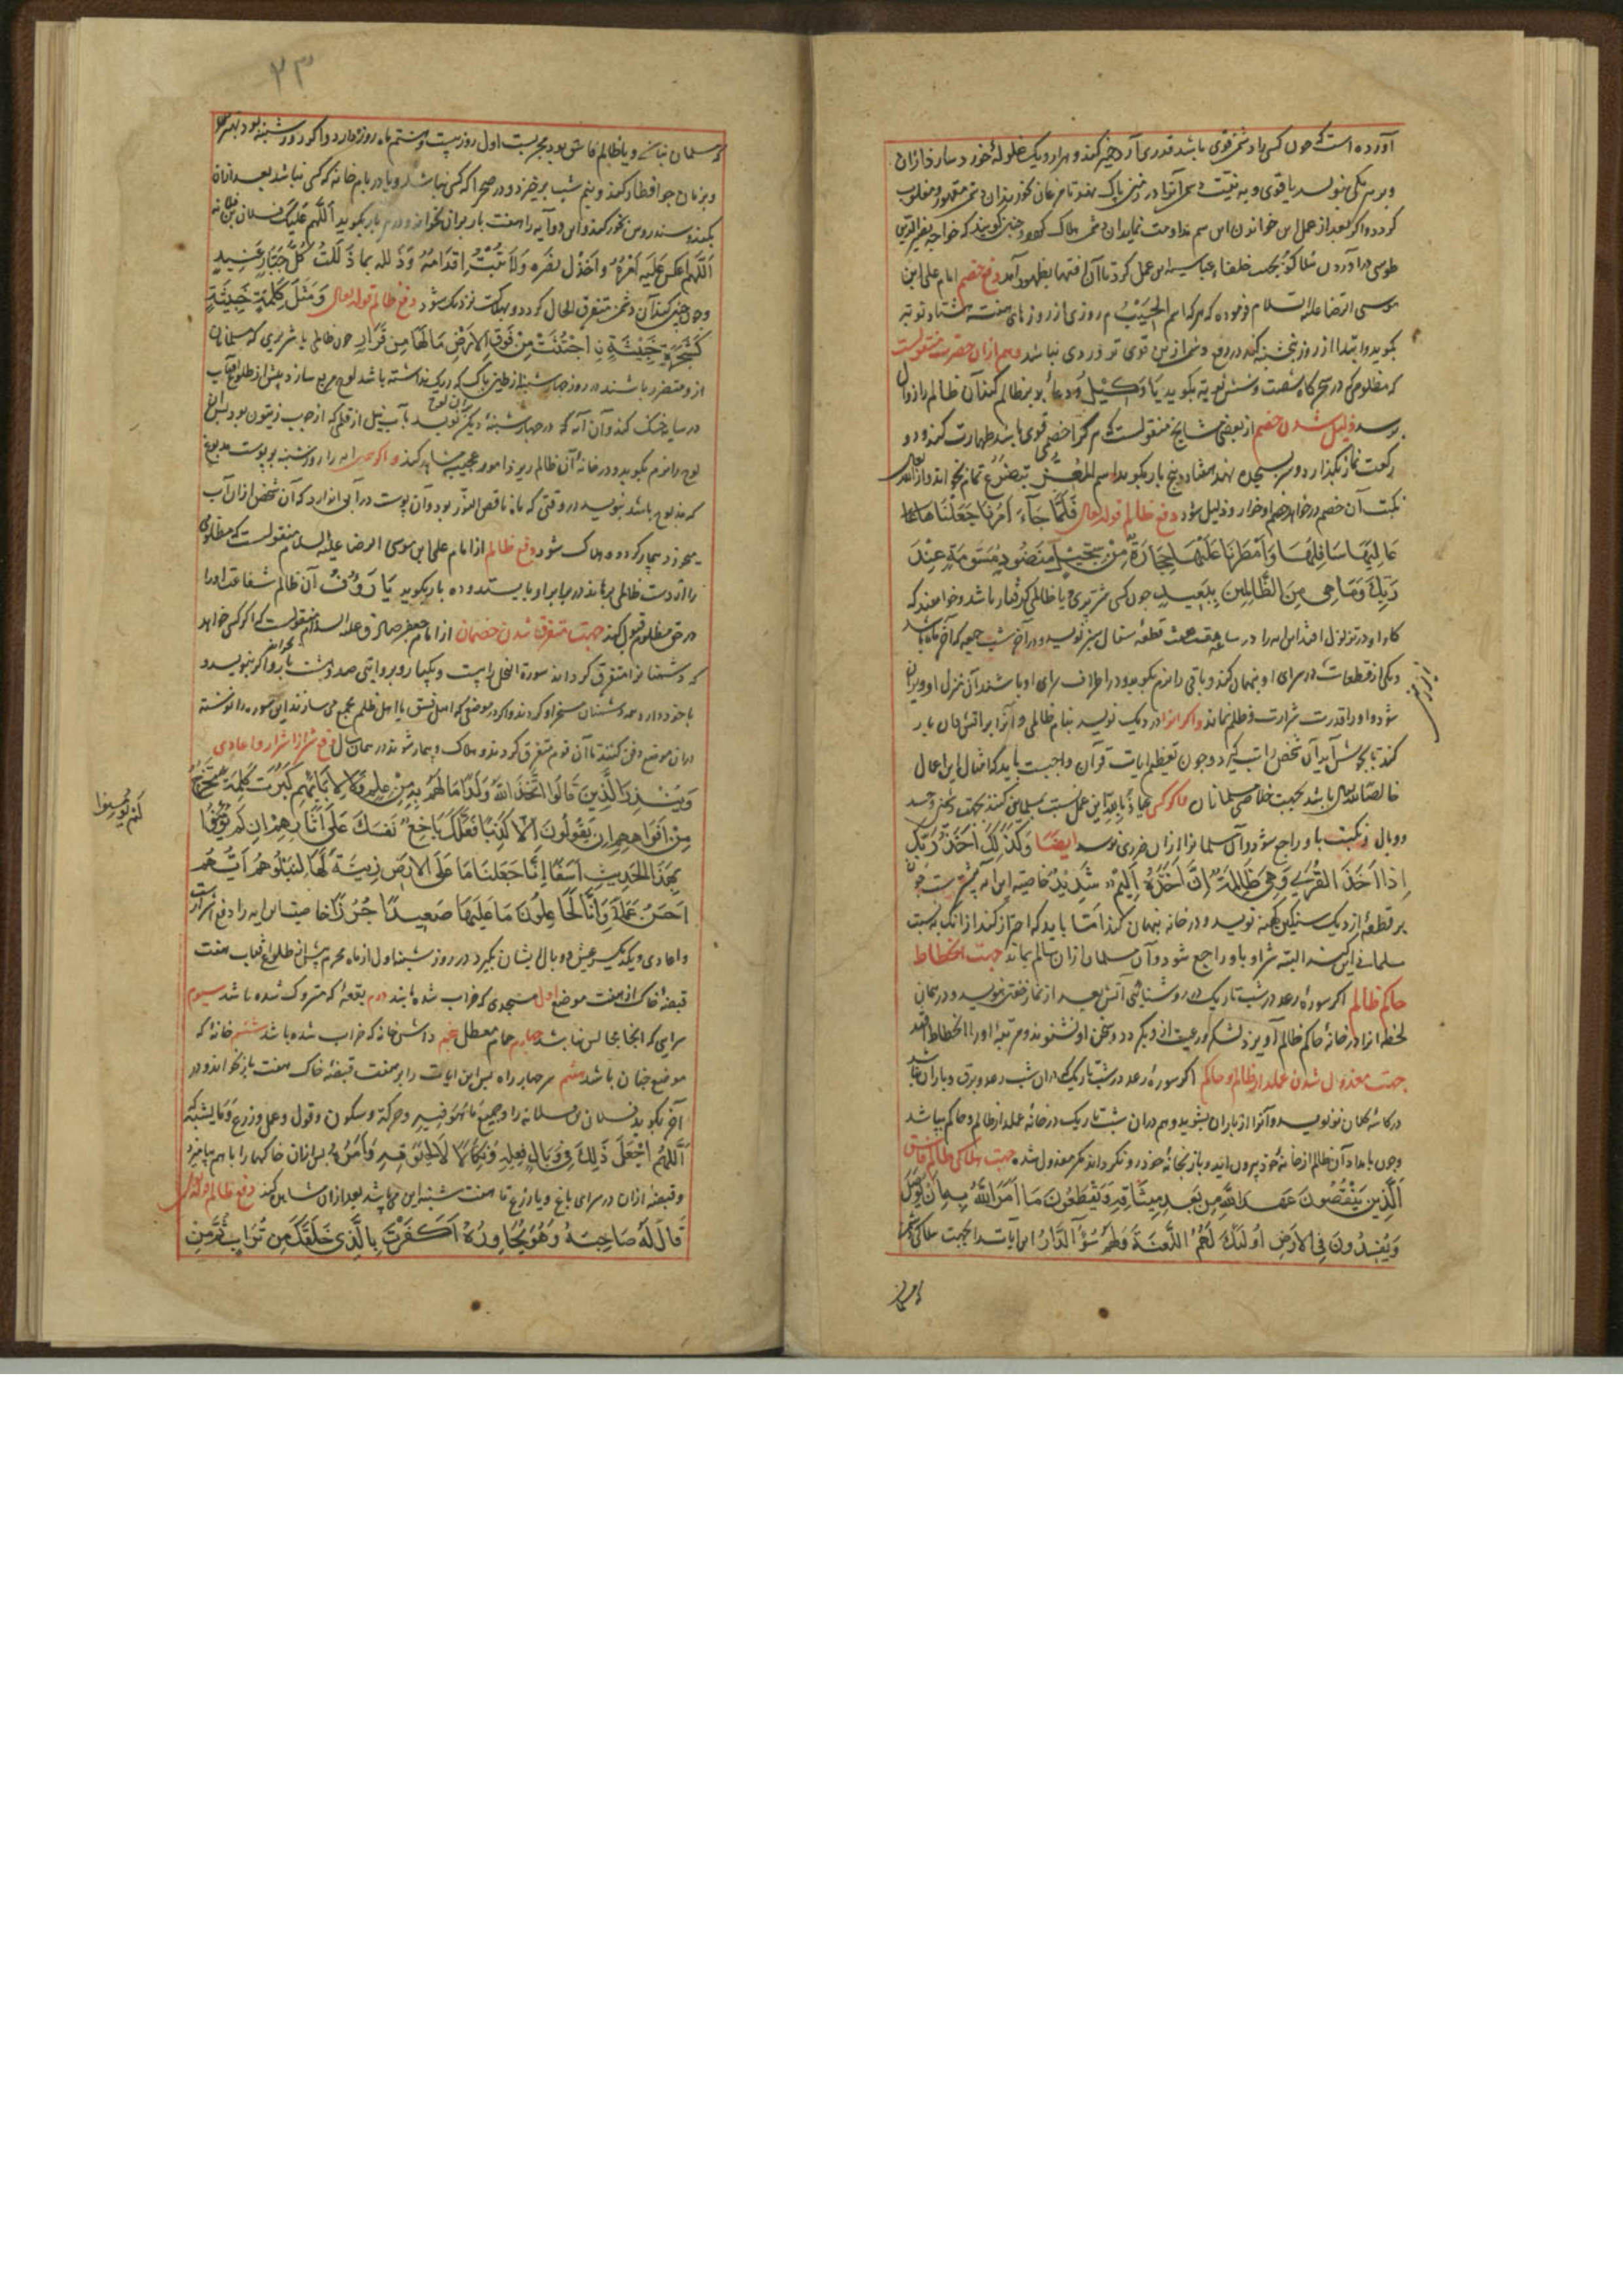 آورده است که چون کسی را دشمن قوی باشد قدری آرد خمیر کند و هزار و یک غلوله خورد سازد و از آن
و بر هر یکی بنویسد یا قوی و به نیت دشمن آنرا در زمین پاک نهد تا مرغان بخورند آن دشمن مقهور و مغلوب
گردد و اگر بعد از عمل این خواندن این اسم مداومت نماید آن دشمن هلاک گردد و چنین گویند که خواجه نصیر الدین
طوسی در آوردن هلاکو بجهت خلفاء عباسیه این عمل کرد تا آن فتنها بظهور آمد دفع خصم امام علی ابن
موسی الرضا علیه السلام فرموده که هر که اسم الحسیب هر روزی از روزهای هفته هشتاد نوبته
بگوید و ابتدا از روز پنجشنبه کند در دفع دشمن ازین قوی تر وردی نباشد و هم از ان حضرت منقولست
که مظلومی که در سحرگاه شصت و شش نوبة بگوید یَا وَکِیْلُ و دعای بد بر ظالم کند آن ظالم را زوال
برسد ذلیل شدن خصم از بعضی مشایخ منقولست که هر کرا خصمی قوی باشد طهارت کند و دو
رکعت نماز بگذارد و سر بسجده نهد هفتاد و پنج بار بگوید اسم المُعِزّ بتضرع تمام بخواند و از الله تعالی
نکبت آن خصم در خواهد خصم او خوار و ذلیل شود دفع ظالم قوله تعالی فَلَمَّا جَآءَ اَمْرُنَا جَعَلْنَا
عَالِیَهَا سَافِلَهَا وَاَمْطَرْنَا عَلَیْهَا حِجَارَةً مِّنْ سِجِّیْلٍ مَنْضُودٍ مُسَوَّمَةً عِنْدَ
رَبِّكَ وَمَا هِیَ مِنَ الظَّالِمِینَ بِبَعِیدٍ چون کسی شریری و یا ظالمی گرفتار باشد و خواهند که
کار او در تزلزل افتد این آیه را در ساعت قطعه سفال سبز نویسد و در آخر شب جمعه که آخر ماه باشد
و یکی از قطعات در سرای او پنهان کند و باقی را نرم بکوبد و در اطراف سرای او باشد آن منزل او ویران
شود و او را قدرت شرارت و ظلم نماند و اگر انرا در دیک نویسد بنام ظالمی و آنرا بر آتش یار
کند تا بجوش آید آن شخص را تب گیرد و چون تعظیم ایات قرآن واجبست باید که امثال این اعمال
خالصا لله تعالی باشد بجهت خلاصی مسلمانان و اگر کسی عیاذاً بالله این عمل نسبت بمسلمین کند بجهت دشمنی و حسد
و وبال و نکبت باو راجع شود و آن مسلمانرا از ان ضرری نرسد ایضا وَکَذٰلِكَ اَخْذُ رَبِّكَ
اِذَا اَخَذَ الْقُرٰی وَهِیَ ظَالِمَةٌ اِنَّ اَخْذَهٗ اَلِیْمٌ شَدِیْدٌ خاصیت این آیه چون
بر قطعه از دیک سنگین کهنه نویسد و در خانه پنهان کند اما باید که احتراز کند از انکه نسبت
مسلمانی این کند البته شر او باو راجع شود و آن مسلمان از ان سالم بماند جهت انحطاط
حاکم ظالم اگر سورۀ رعد در شب تاریک در روشنائی آتش بعد از نماز خفتن بنویسد و در همان
لحظه انرا در خانۀ حاکم ظالم آویزد لشکر و رعیت از و بگردد و سخن او نشنوند و مرتبه او را انحطاط افتد
جهت معزول شدن عملدار ظالم و حاکم اگر سورۀ رعد در شب تاریک که دران شب رعد و برق و باران باشد
در کاسه کلان نو نویسد و آنرا از باران بشوید و هم دران شب تاریک در خانه عملدار ظالم و حاکم بپاشد
و چون بامداد آن ظالم از خانه خود بیرون آید و باز بخانه خود رو نکرداند مکر معزول شده جهت هلاکی ظالم فاسق
اَلَّذِینَ یَنْقُضُونَ عَهْدَ اللّٰهِ مِنْ بَعْدِ مِیثَاقِهِ وَیَقْطَعُونَ مَا اَمَرَ اللّٰهُ بِهِ اَنْ یُوصَلَ
وَیُفْسِدُونَ فِی الْاَرْضِ اُولٰئِكَ لَهُمُ اللَّعْنَةُ وَلَهُمْ سُوْءُ الدَّارِ این آیات را جهت هلاکی
۲۳
مسلمان نباشد و یا ظالم فاسق بود بجهت اول روز بیست و هشتم ماه روزه دارد و اگر روز شنبه بود بهتر
و بنان جو افطار کند و نیم شب برخیزد و در صحرا که کسی نباشد و یا در بام خانه که کسی نباشد بعد از ان
بکندر و سندروس بخور کند و این دو آیه را هفت بار بر ان بخواند و در هر بار بگوید اَللّٰهُمَّ عَلَیْكَ فلان بن فلانه
اَللّٰهُمَّ اعْکِسْ عَلَیْهِ اَمْرَهٗ وَاخْذُلْ نَصْرَهٗ وَلَا تُثَبِّتْ اَقْدَامَهٗ وَذَلِّلْهُ بِمَا ذَلَّلْتَ کُلَّ جَبَّارٍ عَنِیدٍ
و چون چنین کند آن دشمن متفرق الحال گردد و بهلاکت نزدیک شود دفع ظالم قوله تعالی وَمَثَلُ کَلِمَةٍ خَبِیثَةٍ
کَشَجَرَةٍ خَبِیْثَةِ نِ اجْتُثَّتْ مِنْ فَوْقِ الْاَرْضِ مَا لَهَا مِنْ قَرَارٍ چون ظالمی یا شریری که مسلمانان
از و متضرر باشند در روز چهارشنبه از طین پاک که ریک نداشته باشد لوح مربع سازد پیش از طلوع آفتاب
در سایه خشک کند و آن آیه که در چهارشنبۀ دیگر بران لوح نویسد بآب نیل از قلمی که از چوب زیتون بود پس آن
لوح را نرم بکوبد و در خانۀ آن ظالم ریزد امور عجیبه مشاهده کند و اگر همین آیه را روز شنبه بر پوست مدبوغ
که مذبوح باشد بنویسد در وقتی که ماه ناقص النور بود و آن پوست در آبی اندازد که آن شخص از ان آب
میخورد بیمار گردد و هلاک شود دفع ظالم از امام علی ابن موسی الرضا علیه السلام منقولست که مظلومی
را از دست ظالمی برهاند در برابر او بایستد و ده بار بگوید یَا رَؤُفُ آن ظالم شفاعت او را
در حق مظلوم قبول کند جهت متفرق شدن خصمان از امام جعفر صادق علیه السلام منقولست که اگر کسی خواهد
که دشمنانرا متفرق گرداند سورة النحل را بیست و یکبار و بروایتی صد و هشت بار بخواند و اگر بنویسد و
با خود دارد همه دشمنان مسخر او گردند و اگر در موضعی که اهل فسق یا اهل ظلم مجمع می سازند این سوره را نوشته
دران موضع دفن کنند تا آن قوم متفرق گردند و هلاک و بیمار شوند در همان سال دفع شر اشرار و اعادی
وَیُنْذِرَ الَّذِینَ قَالُوا اتَّخَذَ اللّٰهُ وَلَدًا مَا لَهُمْ بِهِ مِنْ عِلْمٍ وَلَا لِاٰبَائِهِمْ کَبُرَتْ کَلِمَةً تَخْرُجُ
مِنْ اَفْوَاهِهِمْ اِنْ یَقُولُونَ اِلَّا کَذِبًا فَلَعَلَّكَ بَاخِعٌ نَفْسَكَ عَلٰی اٰثَارِهِمْ اِنْ لَمْ یُؤْمِنُوا
بِهٰذَا الْحَدِیثِ اَسَفًا اِنَّا جَعَلْنَا مَا عَلَی الْاَرْضِ زِینَةً لَهَا لِنَبْلُوَهُمْ اَیُّهُمْ
اَحْسَنُ عَمَلًا وَاِنَّا لَجَاعِلُونَ مَا عَلَیْهَا صَعِیدًا جُرُزًا خاصیت این ایه را دفع اشرار
و اعادی و یکدیگر عیش و وبال ایشان بگیرد در روز شنبه اول از ماه محرم پیش از طلوع آفتاب هفت
قبضۀ خاک از هفت موضع اول مسجدی که خراب شده باشد دوم بقعۀ که متروک شده باشد سیوم
سرای که انجا مجالس نباشد چهارم حمام معطل پنجم داش خانه که خراب شده باشد ششم خانۀ که
موضع جنان باشد هفتم سر چهار راه پس این ایات را بر هفت قبضۀ خاک هفت بار بخواند و در
آخر بگوید فلان بن فلانه را وجمیع ما هو فیه و حرکة و سکون و قول و عمل و زرع
اَللّٰهُمَّ اجْعَلْ ذٰلِكَ فِی وَبَالِ فِعْلِهٖ وَنَکَالًا پس ازان خاکها را با هم بیامیزد
و قبضۀ ازان در سرای باغ و یا زرع تا هفت شنبه این می پاشد بعد ازان مشاهده کند دفع ظالم قوله تعالی
قَالَ لَهٗ صَاحِبُهٗ وَهُوَ یُحَاوِرُهٗ اَکَفَرْتَ بِالَّذِی خَلَقَكَ مِنْ تُرَابٍ ثُمَّ مِنْ